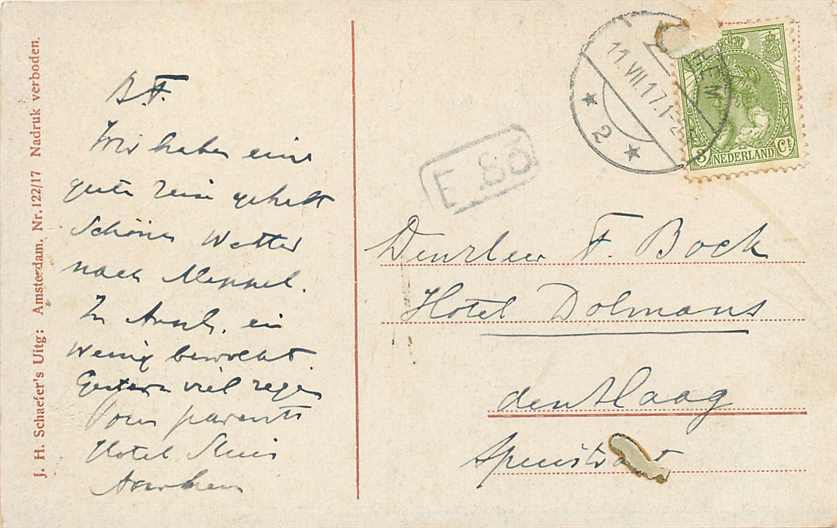 J. H. Schaefer's Uitg: Amsterdam. Nr. 122/17 Nadruk verboden.
B. F.
Wir haben eine
gute Reise gehabt
Schönes Wetter
nach Meppel.
In Arnh. ein
wenig bewolkt
Gestern viel regen
Your parents
Hotel
Arnhem
HEM
11.VII.17.1-2
* 2 *
3 Ct
NEDERLAND
E.83
Den Heer F. Bock
Hotel Dolmans
den Haag
Spuistraat